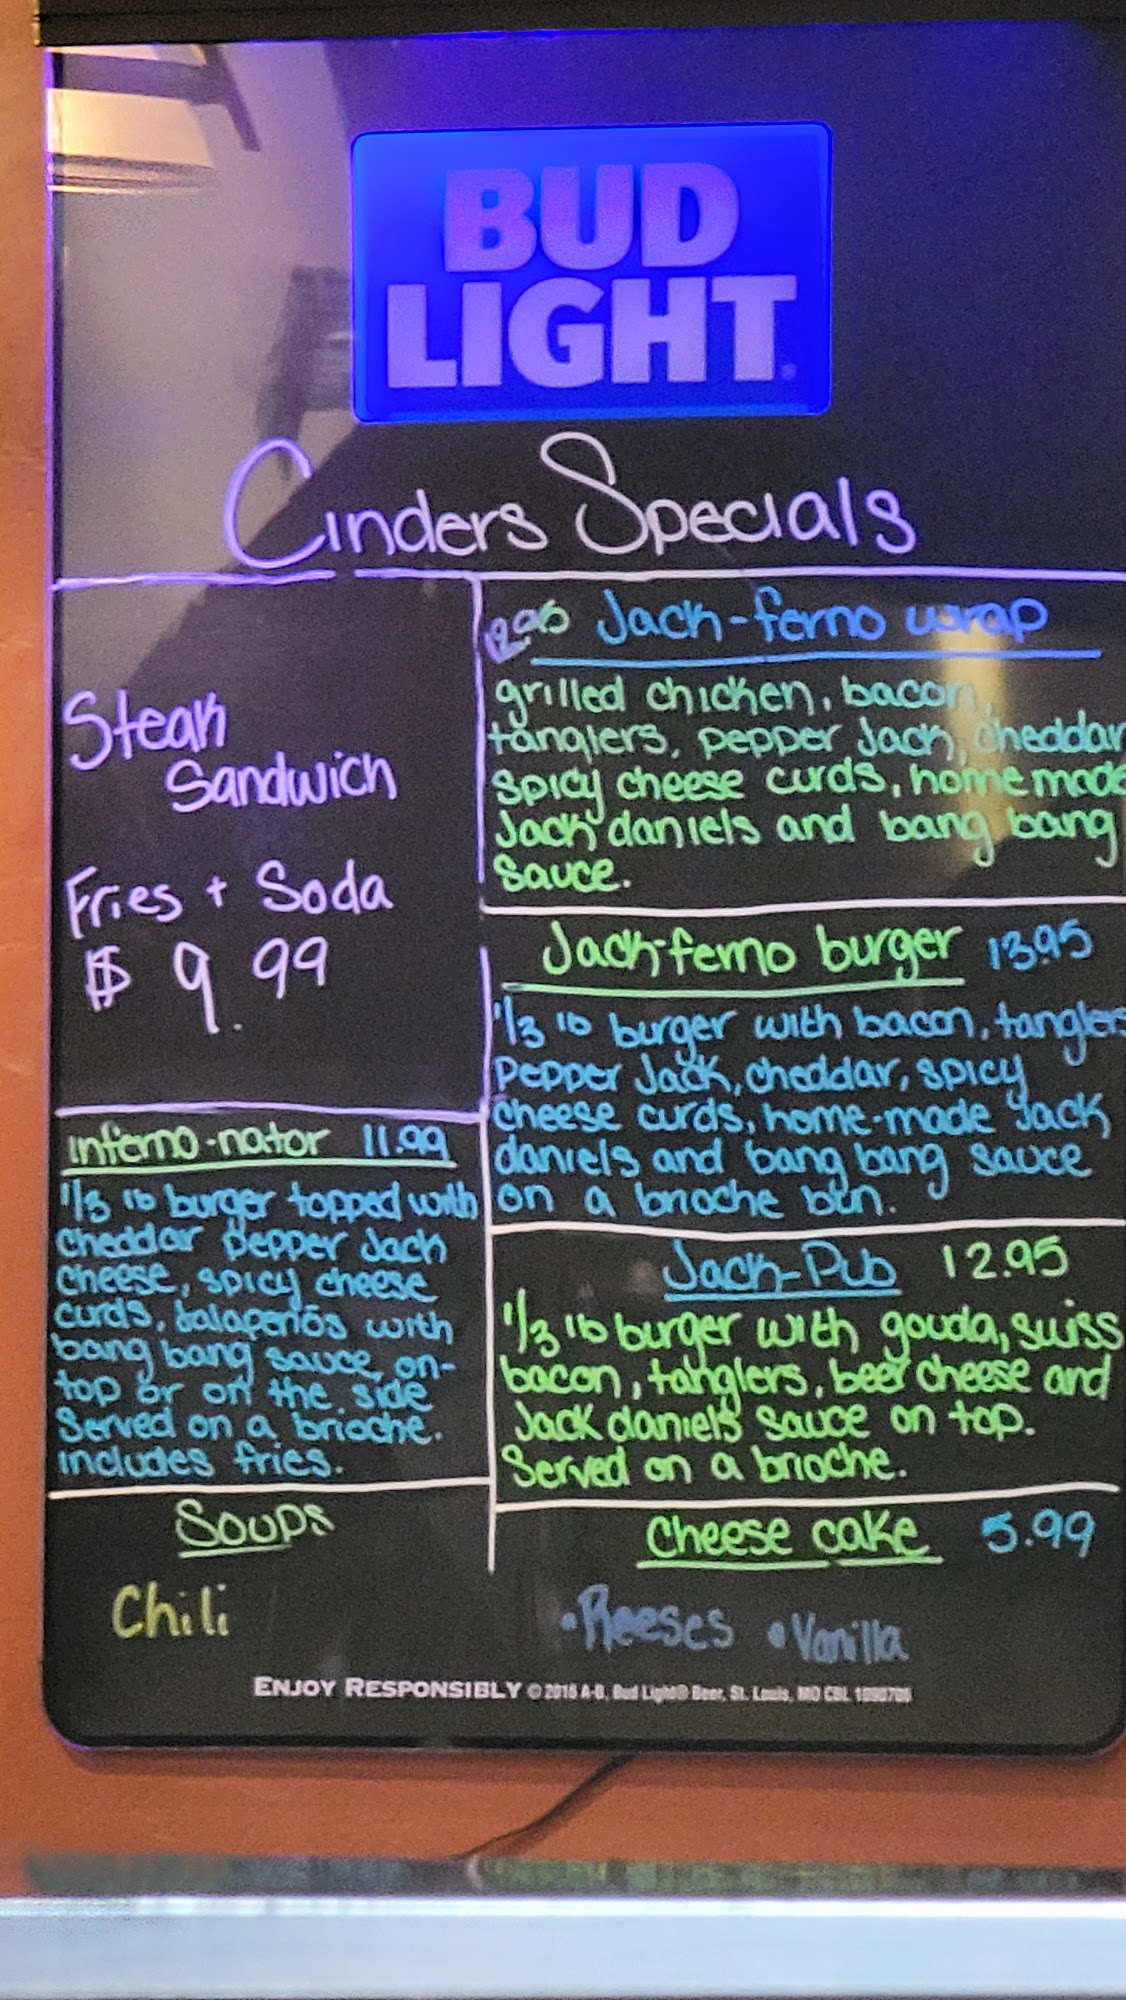 BUD
LIGHT
Cinders Specials
Steak
Sandwich
Fries + Soda
$ 9.99
Inferno-nator 11.99
1/3 lb burger topped with
cheddar pepper Jack
cheese, spicy cheese
curds, Jalapeños with
bang bang sauce on-
top or on the side
Served on a brioche.
includes fries.
Soups
Chili
12.95 Jack-ferno wrap
grilled chicken, bacon,
tanglers, pepper Jack, cheddar
spicy cheese curds, home made
Jack daniels and bang bang
sauce.
Jack-ferno burger 13.95
1/3 lb burger with bacon, tanglers
pepper Jack, cheddar, spicy
cheese curds, home-made Jack
daniels and bang bang sauce
on a brioche bun.
Jack-Pub 12.95
1/3 lb burger with gouda, swiss
bacon, tanglers, beer cheese and
Jack daniels sauce on top.
Served on a brioche.
Cheese cake 5.99
•Reeses •Vanilla
ENJOY RESPONSIBLY © 2016 A-B, Bud Light® Beer, St. Louis, MO CBL